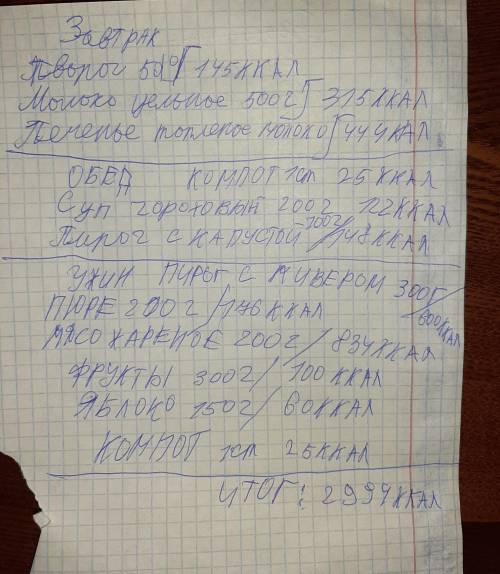 Завтрак
Творог 50г / 145 ккал
Молоко цельное 500г / 315 ккал
Печенье топленое молоко / 444кал
ОБЕД КОМПОТ 1ст 25 ККАЛ
Суп гороховый 200г 122ккал
Пирог с капустой 100г / 148ккал
УЖИН ПИРОГ С ЛИВЕРОМ 300г / 600ккал
ПЮРЕ 200г / 176 ккал
МЯСО ЖАРЕНОЕ 200г / 834ккал
ФРУКТЫ 300г / 100 ККАЛ
ЯБЛОКО 150г / 60ККАЛ
КОМПОТ 1ст 25ККАЛ
ИТОГ: 2994ккал